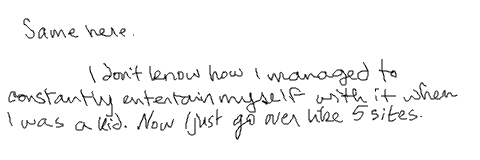 Same here.
I don't know how I managed to
constantly entertain myself with it when
I was a kid. Now I just go over like 5 sites.